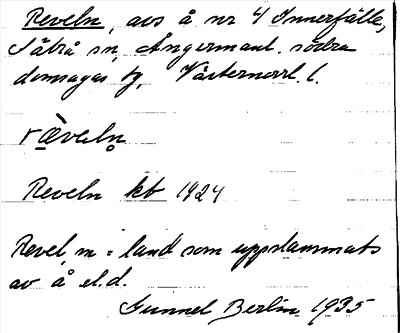 Reveln, avs å nr 4 Innerfälle,
Säbrå sn, Ångermanl. södra
domsagas tg, Västernorrl. l.
ræ̀veln̥
Reveln kb 1924
Revel, m = land som uppslammats
av å el.d.
Gunnel Berlin 1935